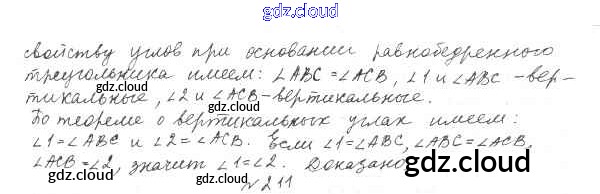 gdz.cloud
свойству углов при основании равнобедренного
треугольника имеем: ∠ABC = ∠ACB, ∠1 и ∠ABC - вер-
тикальные, ∠2 и ∠ACB - вертикальные.
gdz.cloud gdz.cloud
По теореме о вертикальных углах имеем:
∠1 = ∠ABC и ∠2 = ∠ACB. Если ∠1 = ∠ABC, ∠ABC = ∠ACB,
∠ACB = ∠2, значит ∠1 = ∠2. Доказано
gdz.cloud gdz.cloud
№ 211